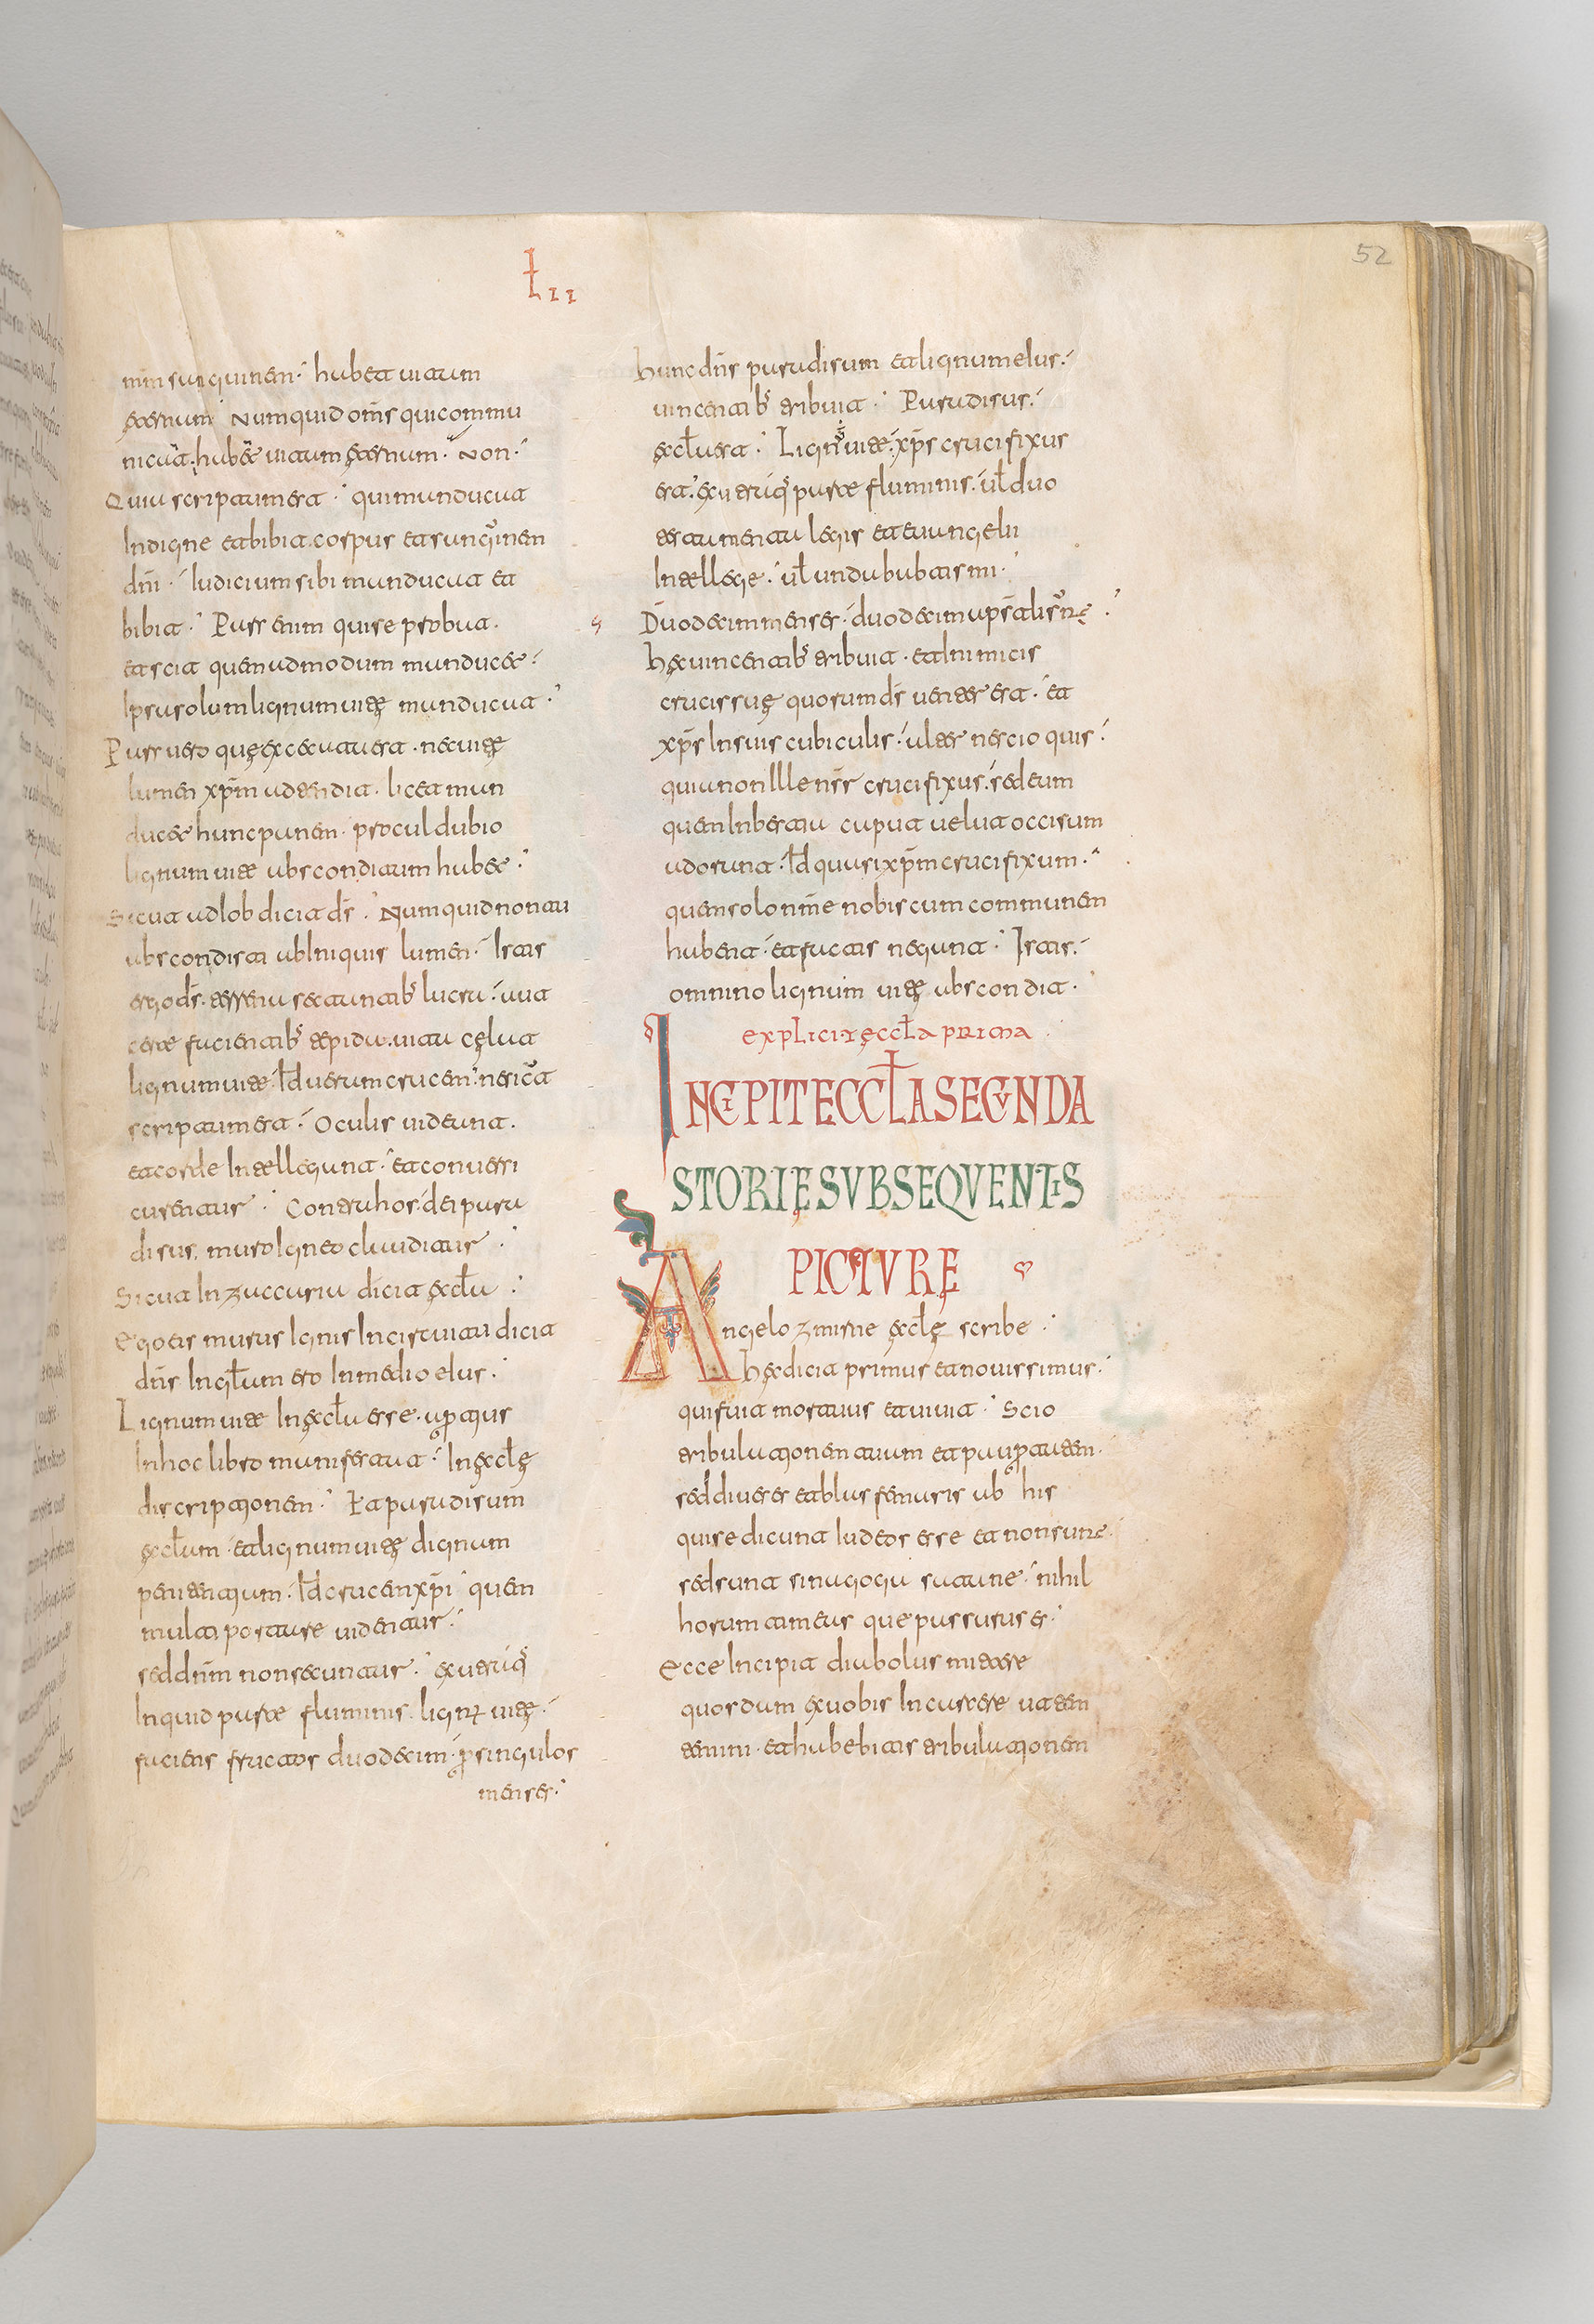 Łii
52
mm sanguinem· habet uitam
ęternum Numquid om̄s qui commu
nicat· habet uitam ęternum· Non·
Quia scriptum est· qui manducat
Indigne et bibit corpus et sanguinem
dn̄i· Iudicium sibi manducat et
bibit· Pars enim qui se probat·
et scit quemadmodum manducet·
Ipsa solum lignum uitę manducat·
Pars uero quę excecata est· nec uitę
lumen xp̄m adtendit· licet man
ducet hunc panem· procul dubio
lignum uite absconditum habet·
Sicut ad Iob dicit ds̄· Numquid non tu
abscondisti ab Iniquis lumen· Istis
ergo ds̄· terrena sectantib; lucra· aut
certe facientib; tepida· uita cęlat
lignum uite· Id uerum crucem· ne sicut
scriptum est· Oculis uideant·
et corde Intellegant· et conuersi
curentur· Contra hos dei para
disus· muro Igneo clauditur·
Sicut In zaccaria dicit ęccła·
Ego eis murus Ignis In circuitu dicit
dn̄s In głam ero In medio eius·
Lignum uite In ęccła esse· aptius
In hoc libro manifestat· In ęccłę
discriptionem· Et paradisum
ęccłam· et lignum uitę dignum
penitentium· Id crucem xp̄i quem
multi portare uidentur·
sed dn̄m non secuntur· ex utriq;
Inquid parte fluminis· lignum uitę·
faciens fructos duodecim· ꝑ singulos
menses·
hunc dn̄s paradisum et lignum eius·
uincentib; tribuit· Paradisus·
ęccła est· Lignum uite· xp̄s crucifixus
est· ex utriq; parte fluminis· uł duo
testamenta legis et euangelii
Intellege· uł unda babtismi·
Duodecim menses· duodecim apsłi sunt·
hęc uincentib; tribuit· et Inimicis
crucis suę quorum ds̄ uenter est· et
xp̄s In suis cubiculis· ualet nescio quis·
quia non Ille nsr̄ crucifixus· sed eum
quem Inberati caput uelut occisum
adorant· Id quasi xp̄m crucifixum·
quem solo nm̄e nobiscum communem
habent· et factis negant· Istis·
omnino lignum uitę abscondit·
explicit ęccła prima
INCIPIT ECCŁA SECVNDA
STORIĘ SVBSEQVENTIS
PICTVRĘ
Angelo zmirne ęccłę scribe·
hęc dicit primus et nouissimus·
qui fuit mortuus et uiuit· Scio
tribulationem tuam et paupertatem·
sed diues es et blasfemaris ab his
qui se dicunt Iudeos esse et non sunt·
sed sunt sinagoga satane· nihil
horum timeas que passurus es·
Ecce Incipit diabolus mittere
quosdam ex uobis In carcere ut tem
temini· et habebitis tribulationem